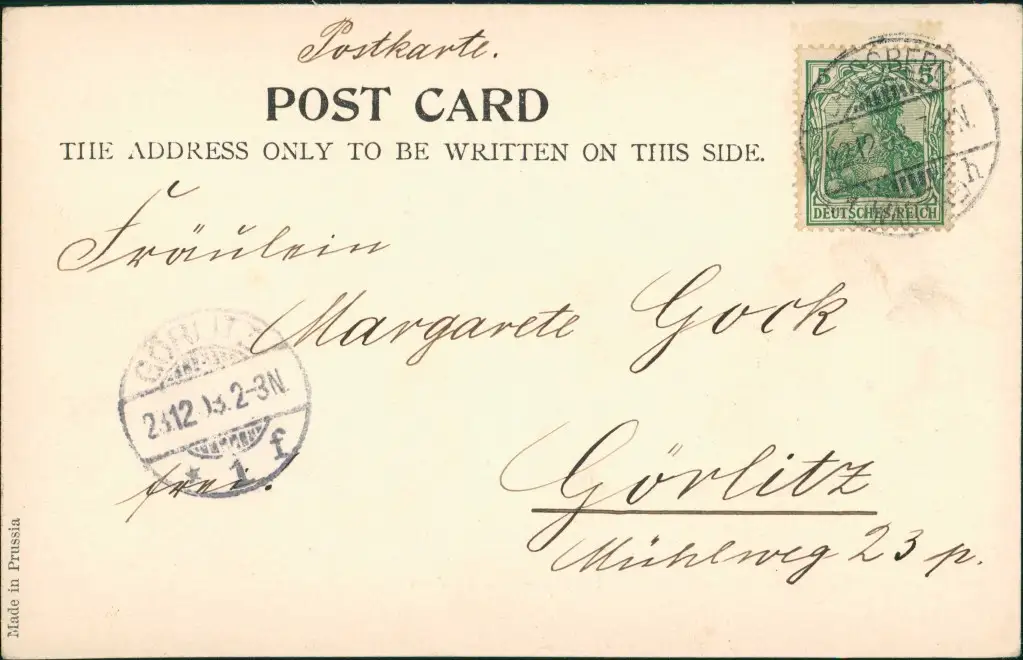 Postkarte.
POST CARD
THE ADDRESS ONLY TO BE WRITTEN ON THIS SIDE.
5 5
DEUTSCHES REICH
h
Fräulein
Margarete Gock
GÖRLITZ
23.12.03.2-3N.
* 1 f
frei.
Görlitz
Mühlweg 23 p.
Made in Prussia